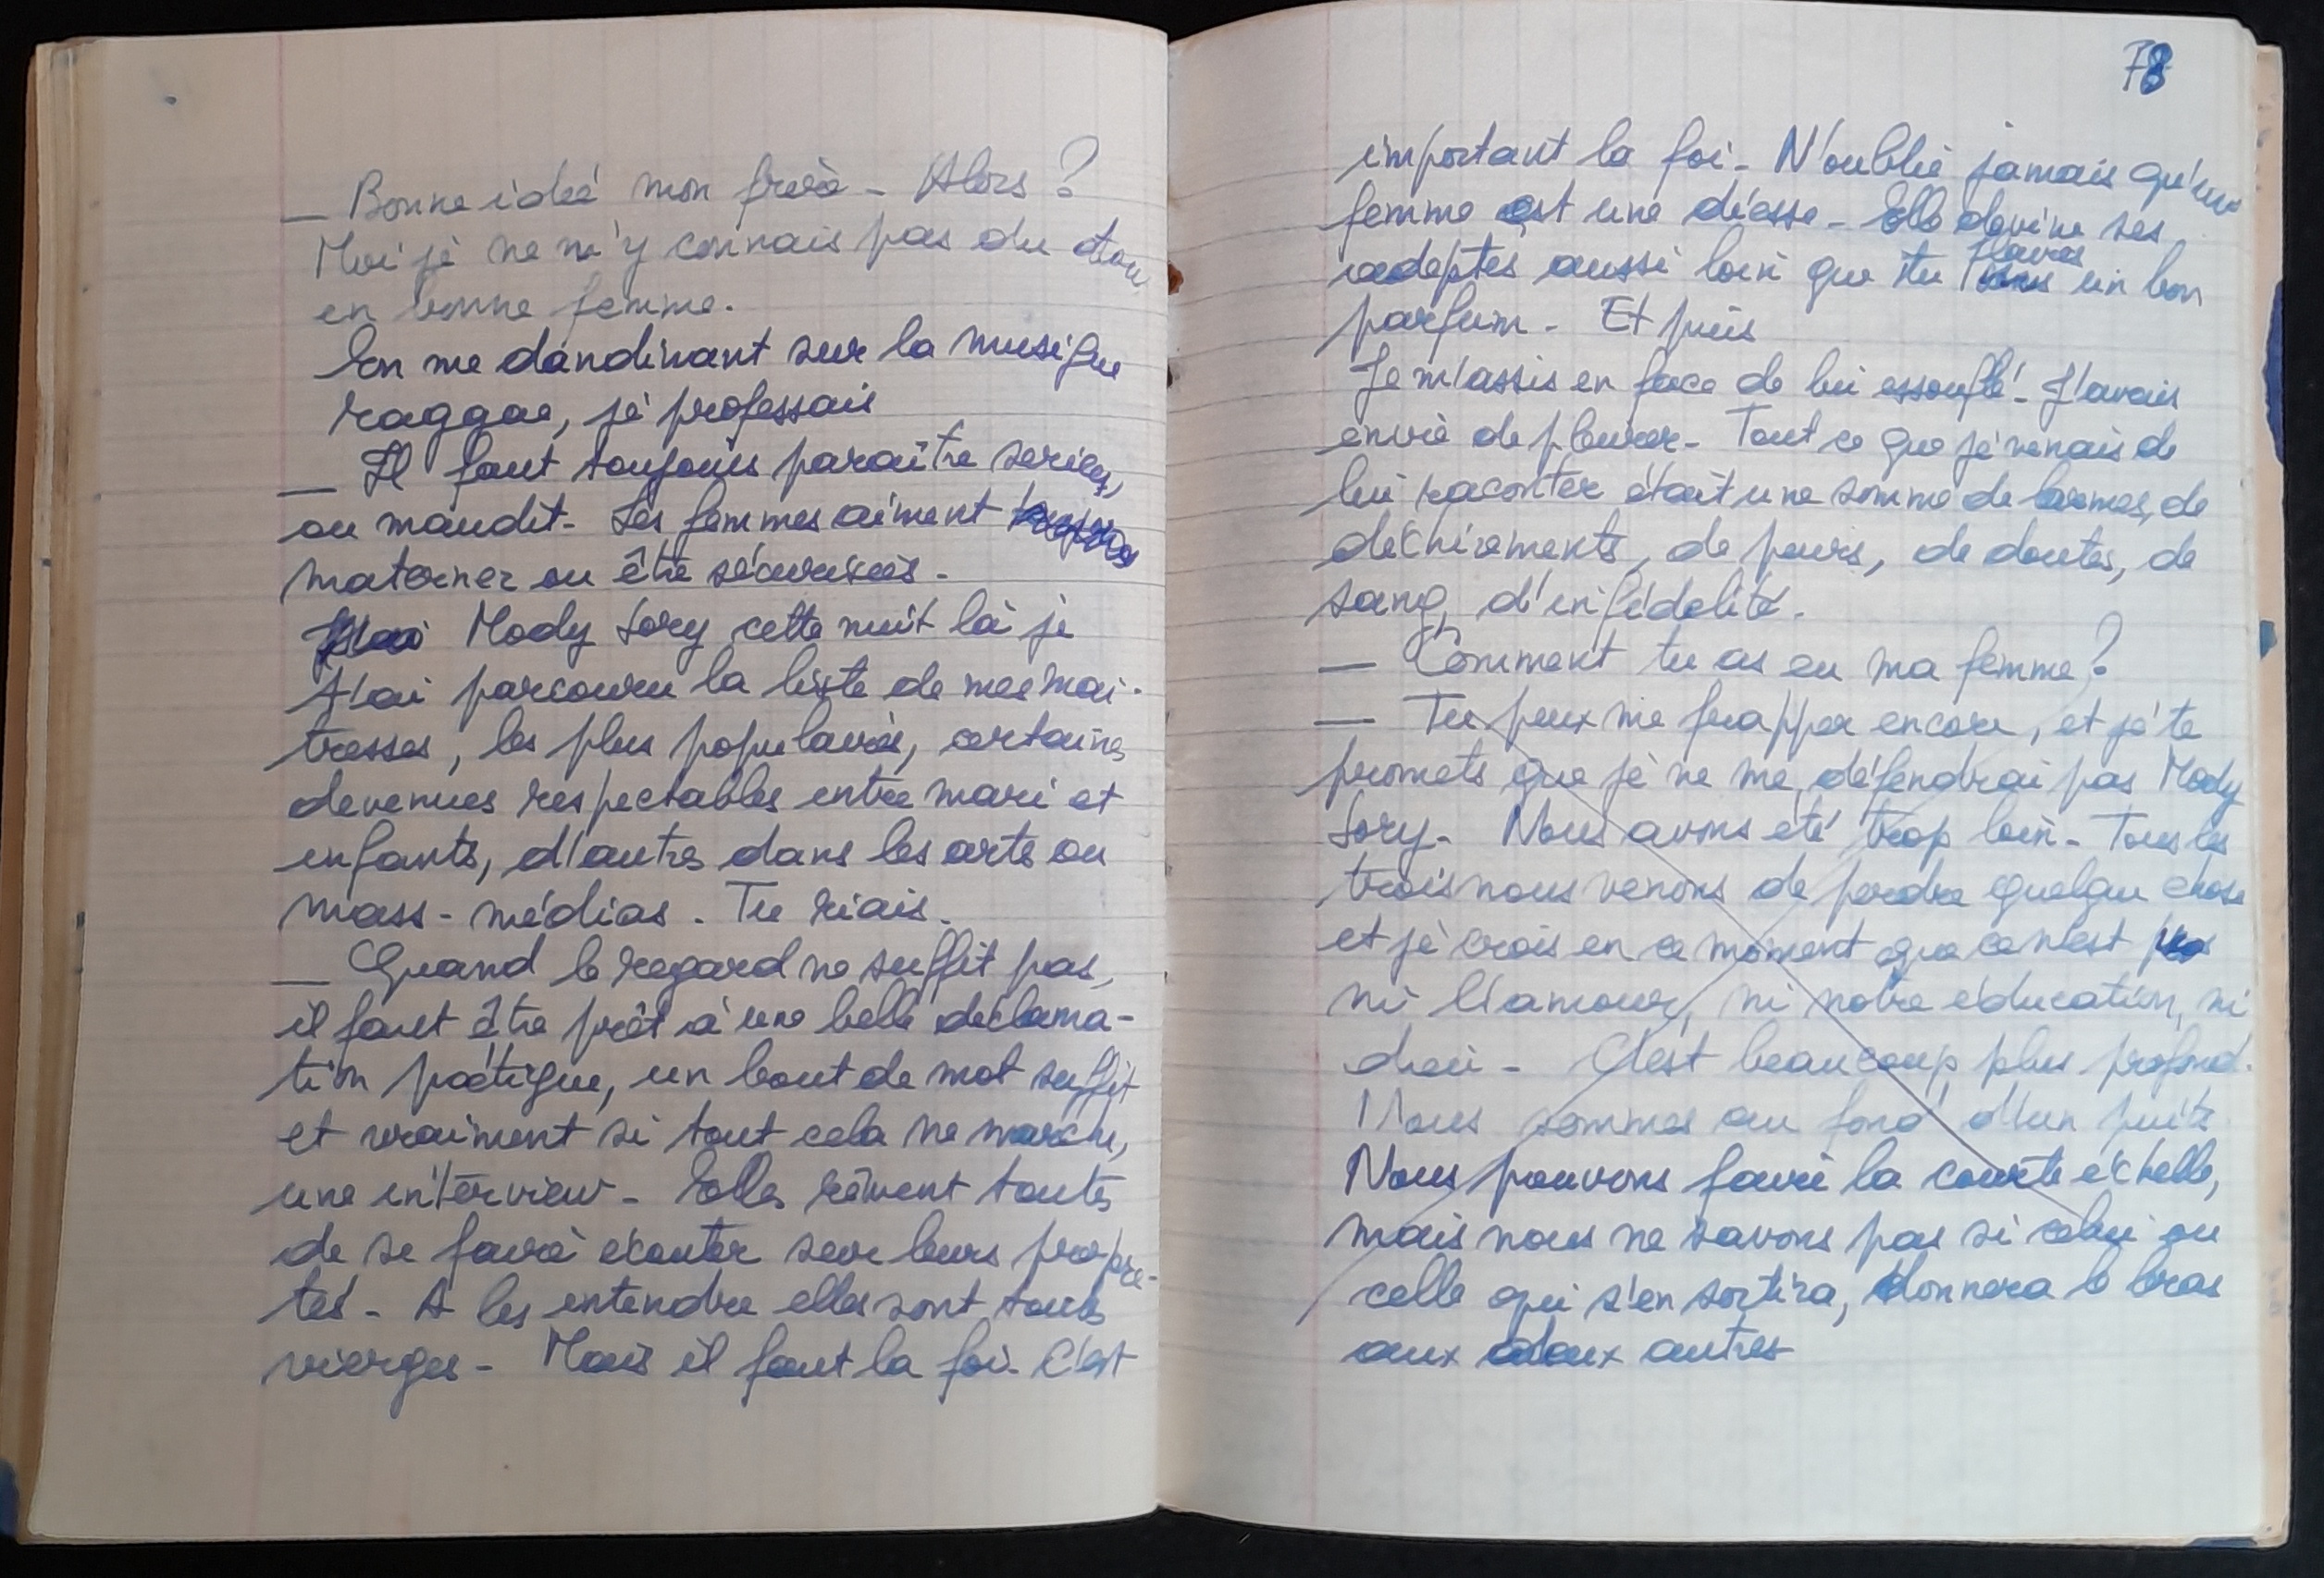 — Bonne idée mon frère - Alors ?
Moi je ne m'y connais pas du tou
en bonne femme.
En me dandinant sur la musique
raggae, je professais
— Il faut toujours paraître serieux,
ou maudit - Les femmes aiment
materner ou être sécurisées.
Mody Sory cette nuit là je
t'ai parcouru la liste de mes mai-
tresses, les plus populaires, certaines
devenues respectables entre mari et
enfants, d'autres dans les arts ou
mass-médias. Tu riais.
— Quand le regard ne suffit pas,
il faut être prêt à une belle declama-
tion poétique, un bout de mot suffit
et vraiment si tout cela ne marche,
une interview - Elles rêvent toutes
de se faire écouter sur leurs propre-
tés - A les entendre elles sont toutes
vierges - Mais il faut la foi. C'est
78
important la foi - N'oublie jamais qu'une
femme est une déesse - Elle devine ses
adeptes aussi loin que tu flaires un bon
parfum - Et puis
Je m'assis en face de lui essouflé - J'avais
envie de pleurer - Tout ce que je venais de
lui raconter était une somme de larmes, de
déchirements, de peurs, de doutes, de
sang, d'infidélité.
— Comment tu as eu ma femme ?
— Tu peux me frapper encore, et je te
promets que je ne me défendrai pas Mody
Sory - Nous avons été trop loin - Tous les
trois nous venons de perdre quelque chose
et je crois en ce moment que ce n'est pas
ni l'amour, ni notre éducation, ni
dieu - C'est beaucoup plus profond.
Nous sommes au fond d'un puits
Nous pouvons faire la courte échelle,
mais nous ne savons pas si celui ou
celle qui s'en sortira, donnera le bras
aux deux autres